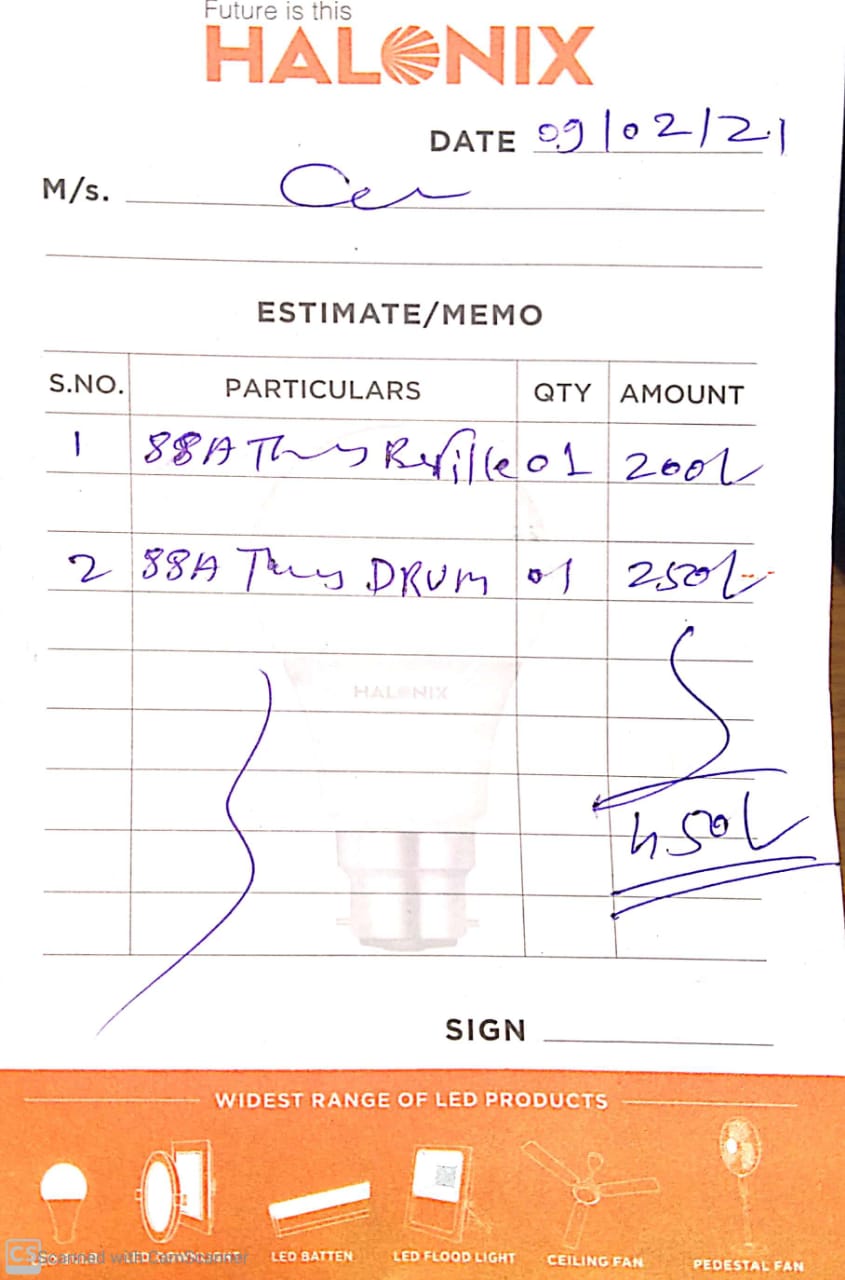 Future is this
HALONIX
DATE 09/02/21
M/s.
ESTIMATE/MEMO
S.NO. PARTICULARS QTY AMOUNT
1 88A Refille 01 200/-
2 88A DRUM 01 250/-
HALONIX
450/-
SIGN
WIDEST RANGE OF LED PRODUCTS
LED DOWNLIGHT LED BATTEN LED FLOOD LIGHT CEILING FAN PEDESTAL FAN
CS Scanned with CamScanner